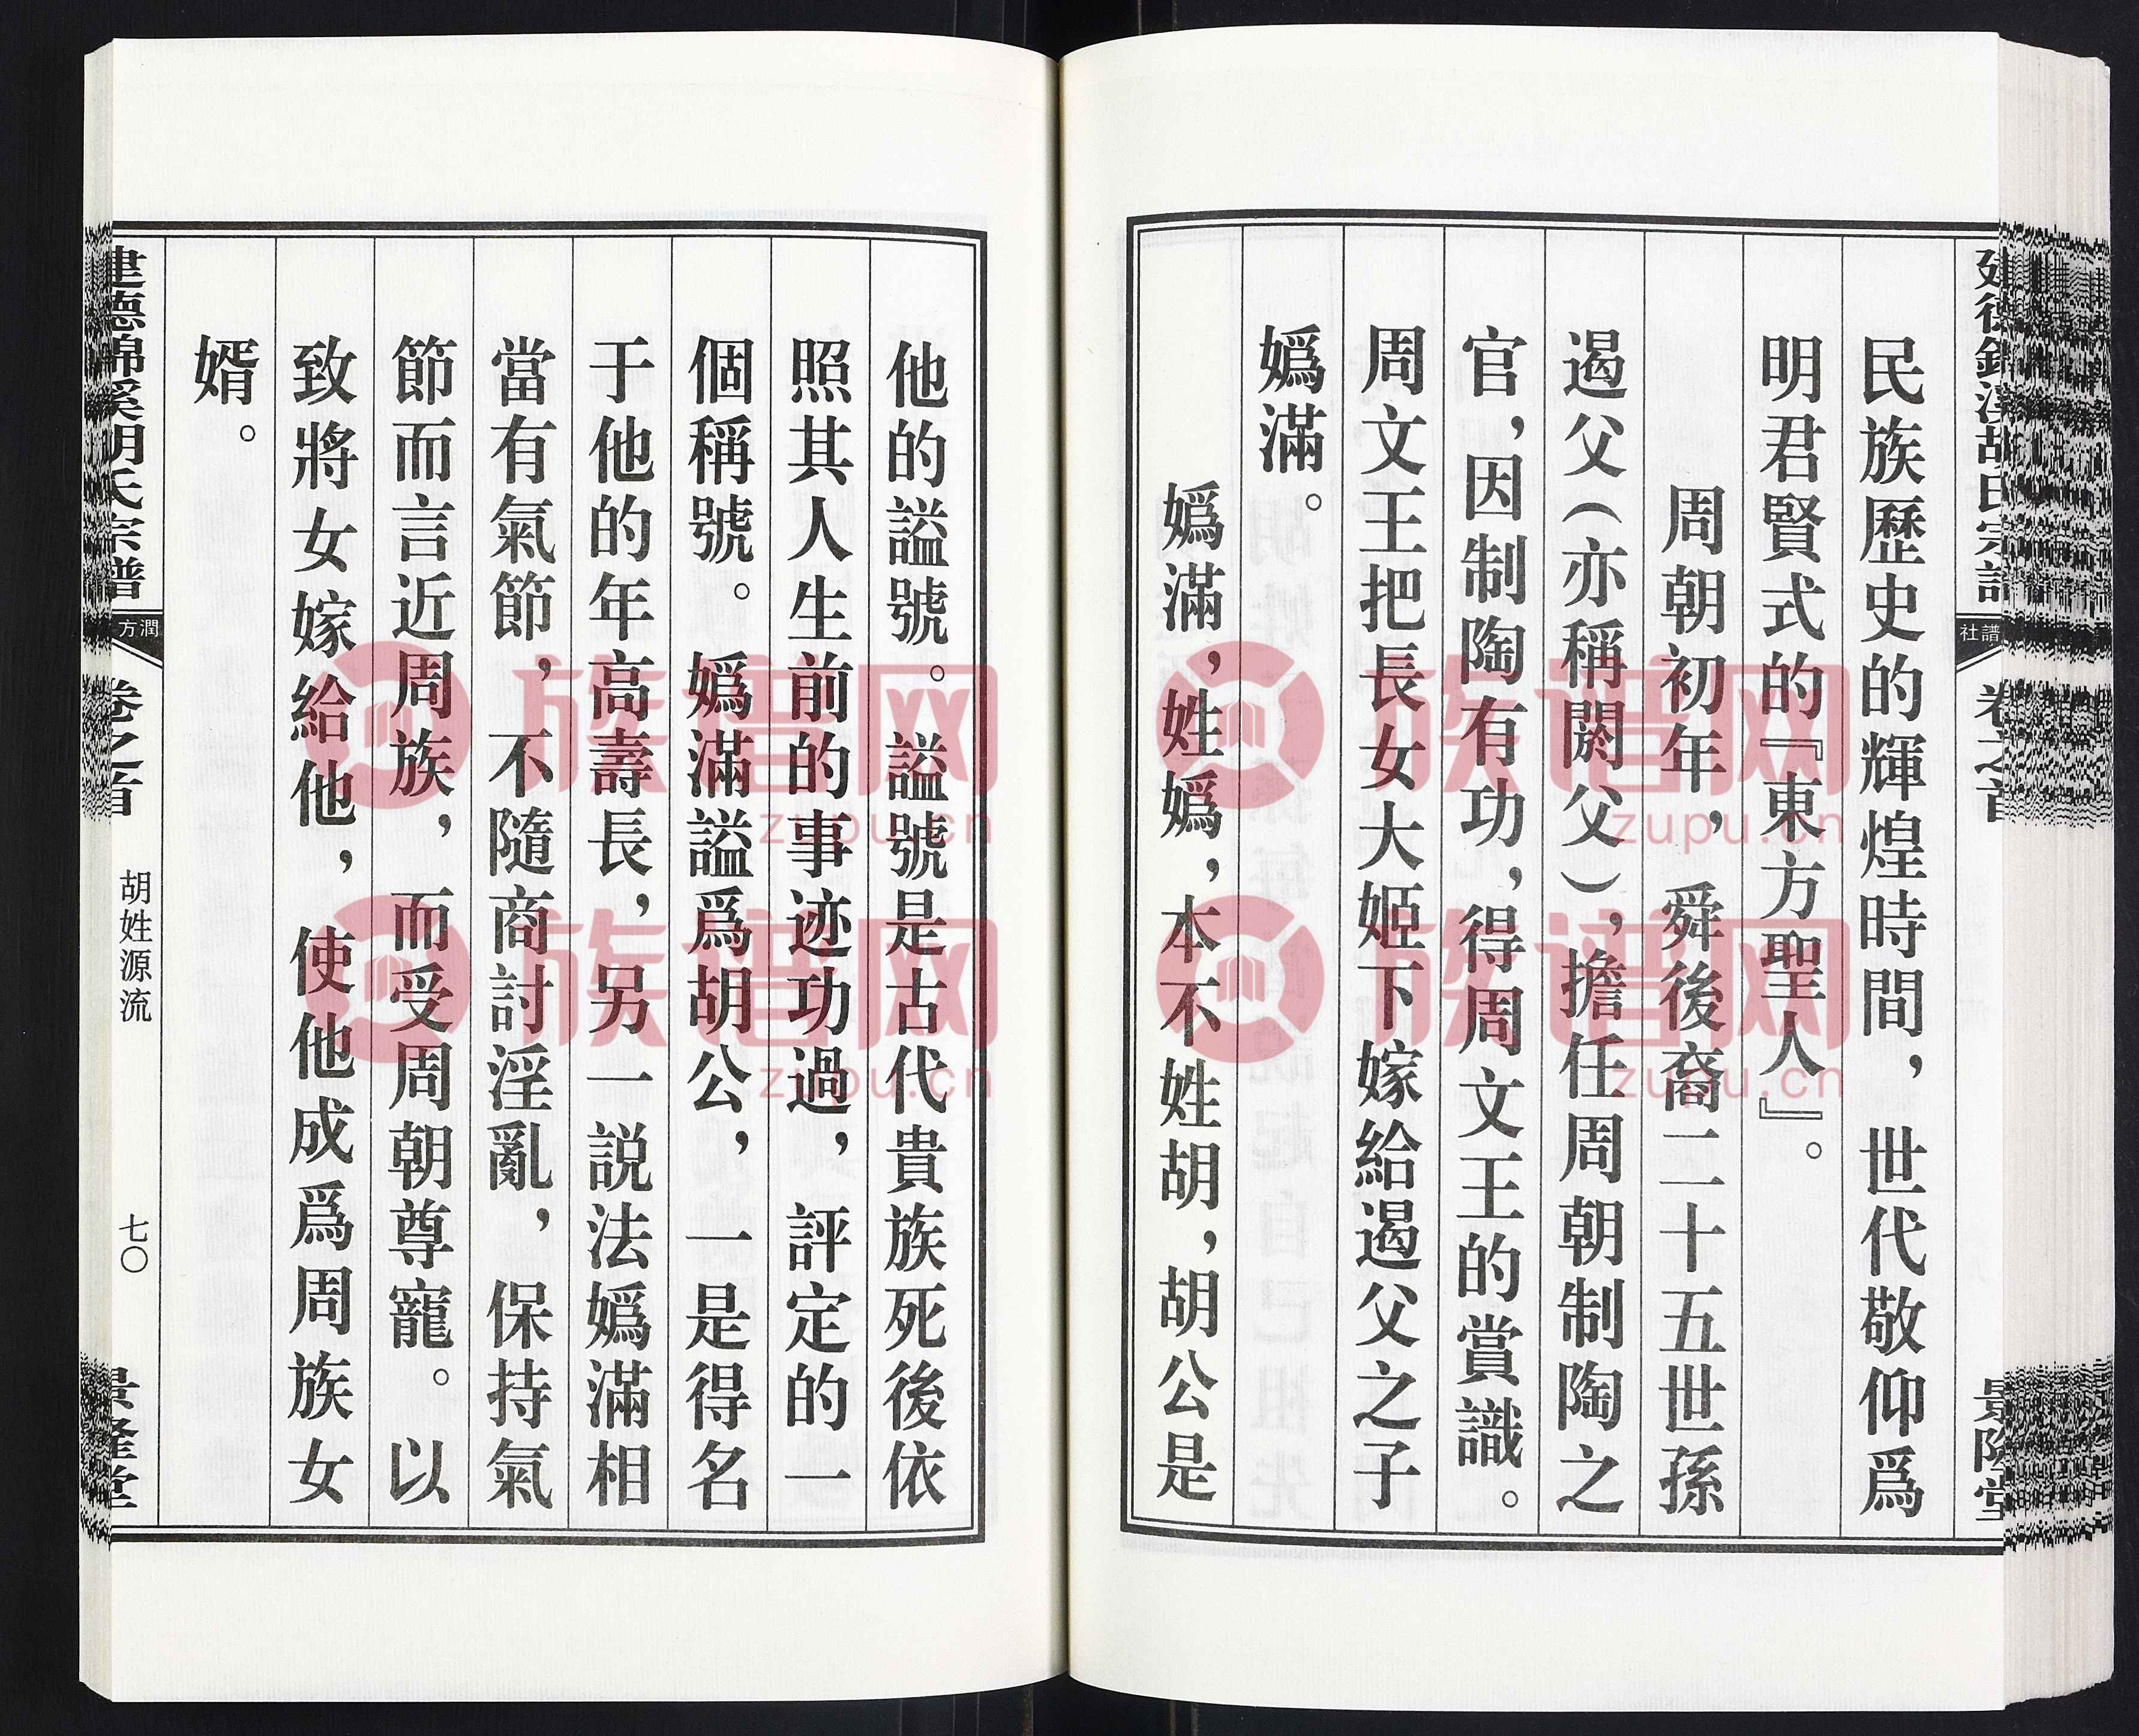 建德錦溪胡氏宗譜
譜社
卷之首
景隆堂
民族歷史的輝煌時間，世代敬仰爲
明君賢式的『東方聖人』。
周朝初年，舜後裔二十五世孫
遏父（亦稱閼父），擔任周朝制陶之
官，因制陶有功，得周文王的賞識。
周文王把長女大姬下嫁給遏父之子
嬀滿。
嬀滿，姓嬀，本不姓胡，胡公是
他的謚號。謚號是古代貴族死後依
照其人生前的事迹功過，評定的一
個稱號。嬀滿謚爲胡公，一是得名
于他的年高壽長，另一説法嬀滿相
當有氣節，不隨商討淫亂，保持氣
節而言近周族，而受周朝尊寵。以
致將女嫁給他，使他成爲周族女
婿。
建德錦溪胡氏宗譜
方潤
卷之首
胡姓源流
七〇
景隆堂
族谱网
zupu.cn
族谱网
zupu.cn
族谱网
zupu.cn
族谱网
zupu.cn